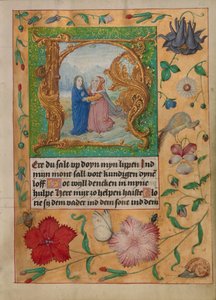 Ere du salt up doyn myn lippen Ind
myn mont sall vort kundigen dyne
loff Got wyll dencken in myne
hulpe Here myr zo helpen haiste Glo
rie sy dem vader ind dem sone ind dem